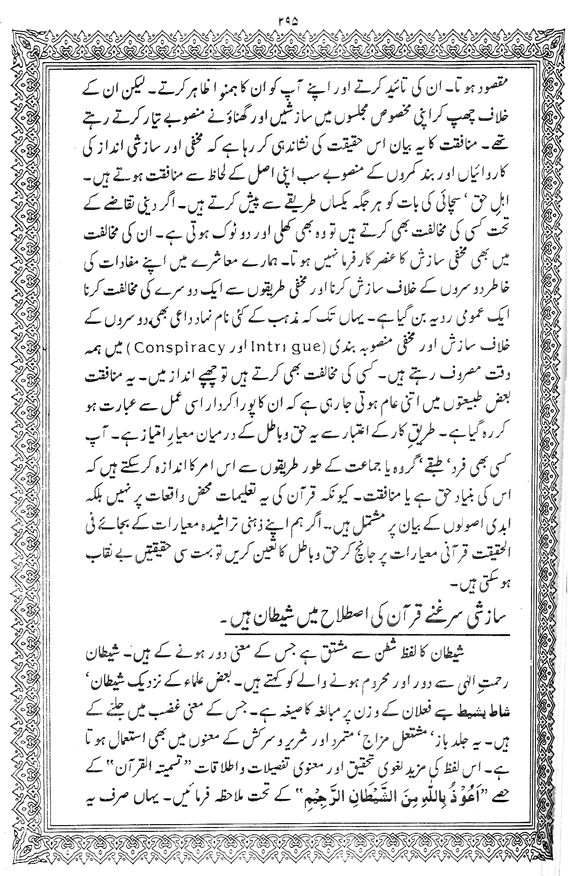 ۲۹۵
مقصود ہوتا۔ ان کی تائید کرتے اور اپنے آپ کو ان کا ہمنوا ظاہر کرتے۔ لیکن ان کے
خلاف چھپ کر اپنی مخصوص مجلسوں میں سازشیں اور گھناؤنے منصوبے تیار کرتے رہتے
تھے۔ منافقت کا یہ بیان اس حقیقت کی نشاندہی کر رہا ہے کہ مخفی اور سازشی انداز کی
کاروائیاں اور بند کمروں کے منصوبے سب اپنی اصل کے لحاظ سے منافقت ہوتے ہیں۔
اہل حق ' سچائی کی بات کو ہر جگہ یکساں طریقے سے پیش کرتے ہیں۔ اگر دینی تقاضے کے
تحت کسی کی مخالفت بھی کرتے ہیں تو وہ بھی کھلی اور دو ٹوک ہوتی ہے۔ ان کی مخالفت
میں بھی مخفی سازش کا عنصر کار فرما نہیں ہوتا۔ ہمارے معاشرے میں اپنے مفادات کی
خاطر دوسروں کے خلاف سازش کرنا اور مخفی طریقوں سے ایک دوسرے کی مخالفت کرنا
ایک عمومی رویہ بن گیا ہے۔ یہاں تک کہ مذہب کے کئی نام نہاد داعی بھی دوسروں کے
خلاف سازش اور مخفی منصوبہ بندی (Intrigue اور Conspiracy) میں ہمہ
وقت مصروف رہتے ہیں۔ کسی کی مخالفت بھی کرتے ہیں تو چھپے انداز میں۔ یہ منافقت
بعض طبیعتوں میں اتنی عام ہوتی جا رہی ہے کہ ان کا پورا کردار اسی عمل سے عبارت ہو
کر رہ گیا ہے۔ طریق کار کے اعتبار سے یہ حق و باطل کے درمیان معیار امتیاز ہے۔ آپ
کسی بھی فرد' طبقے' گروہ یا جماعت کے طور طریقوں سے اس امر کا اندازہ کر سکتے ہیں کہ
اس کی بنیاد حق ہے یا منافقت۔ کیونکہ قرآن کی یہ تعلیمات محض واقعات پر نہیں بلکہ
ابدی اصولوں کے بیان پر مشتمل ہیں۔ اگر ہم اپنے ذہنی تراشیدہ معیارات کے بجائے فی
الحقیقت قرآنی معیارات پر جانچ کر حق و باطل کا تعین کریں تو بہت سی حقیقتیں بے نقاب
ہو سکتی ہیں۔
سازشی سرغنے قرآن کی اصطلاح میں شیطان ہیں۔
شیطان کا لفظ شطن سے مشتق ہے جس کے معنی دور ہونے کے ہیں۔ شیطان
رحمت الٰہی سے دور اور محروم ہونے والے کو کہتے ہیں۔ بعض علماء کے نزدیک شیطان'
شاط یشیط سے فعلان کے وزن پر مبالغہ کا صیغہ ہے۔ جس کے معنی غضب میں جلنے کے
ہیں۔ یہ جلد باز' مشتعل مزاج' متمرد اور شریر و سرکش کے معنوں میں بھی استعمال ہوتا
ہے۔ اس لفظ کی مزید لغوی تحقیق اور معنوی تفصیلات و اطلاقات "تسمیتہ القرآن" کے
حصے "اَعُوْذُ بِاللّٰهِ مِنَ الشَّيْطَانِ الرَّجِيْمِ" کے تحت ملاحظہ فرمائیں۔ یہاں صرف یہ